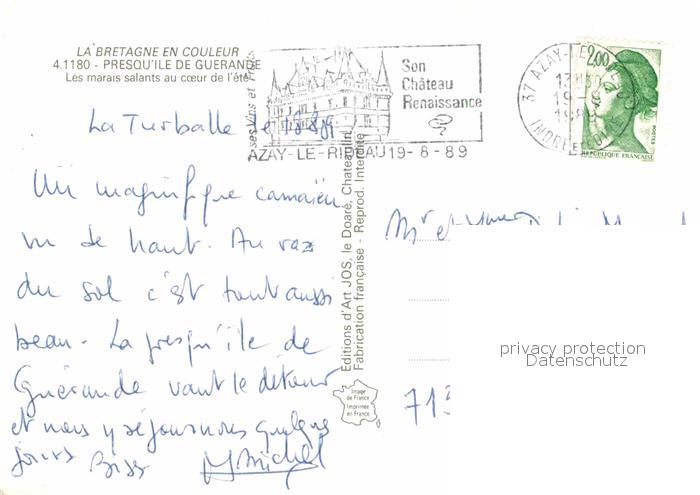 LA BRETAGNE EN COULEUR
4.1180 - PRESQU'ILE DE GUERANDE
Les marais salants au cœur de l'été
ses Vins et
Son
Château
Renaissance
AZAY-LE-RIDEAU 19-8-89
37 AZAY-LE-
INDRE ET
2,00
POSTES
REPUBLIQUE FRANÇAISE
La Turballe le 18 8 89
Un magnifique camaïeu
vu de haut. Au raz
du sol c'est tout aussi
beau. La presqu'île de
Guérande vaut le détour
et nous y séjournons quelques
jours
Bises Michel
Editions d'Art JOS, le Doaré, Chateaulin
Fabrication française - Reprod. Interdite
Image
de France
Imprimée
en France
Mr et
713
privacy protection
Datenschutz